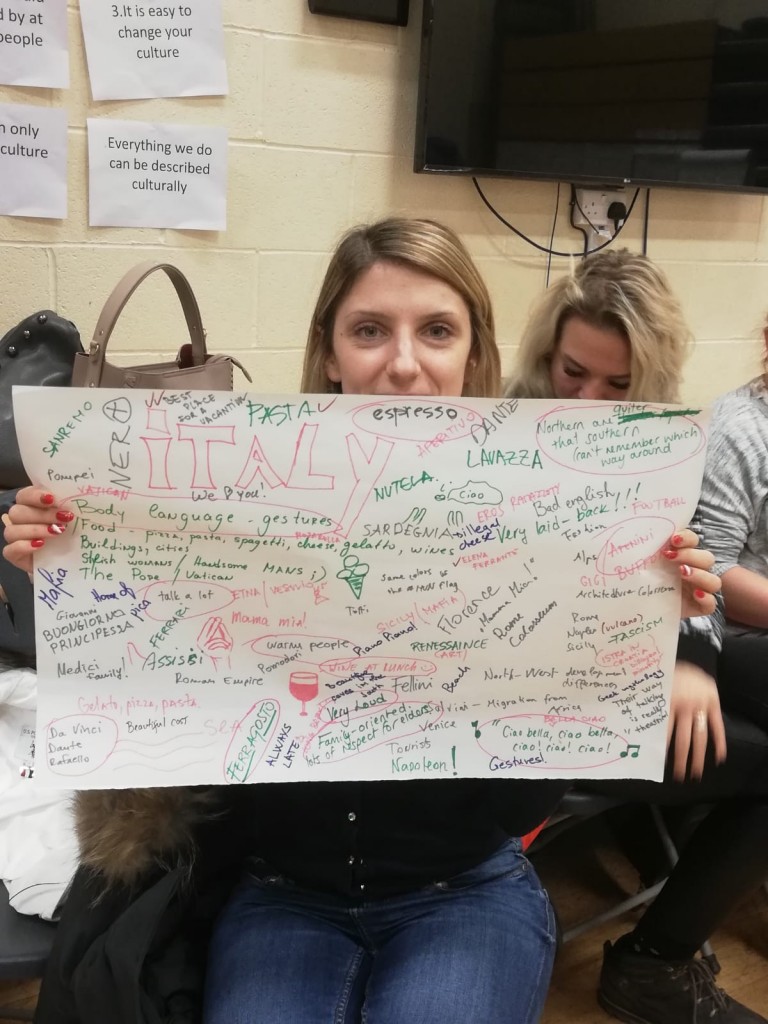 d by at
people
3.It is easy to
change your
culture
n only
culture
Everything we do
can be described
culturally
SANREMO
NERO
BEST
PLACE
FOR A
ITALY
We you!
PASTA
espresso
APERITIVO
DANTE
LAVAZZA
quiter
Northern are
that southern
(can't remember which
way around
Pompei
VATICAN
NUTELA
Ciao
EROS RAMAZZOTTI
Bad english
Very laid-back!!!
FOOTBALL
Body language - gestures
MOZZARELLA
SARDEGNA
illegal
cheese
Fashion
Food - pizza, pasta, spagetti, cheese, gelatto, wines
Buildings, cities
Stylish womans / Handsome MANS ;)
The Pope / Vatican
ELENA
FERRANTE
Alps
ARMANI
GIGI BUFFON
Architecture - Colosseum
Mafia
Home of
pica
talk a lot
ETNA/VESUVIO
Totti
Same colors
Florence
"Mamma Mia!"
Rome
Colosseum
Giovanni
BUONGIORNO
PRINCIPESSA
FERRARI
Mama mia!
SICILY (MAFIA)
Rome
Naples (vulcano)
Sicily
FASCISM
Medici
family!
ASSISI
warm people
Piano Piano!
RENESSAINCE
(ART)
Pomodori
Roman Empire
WINE AT LUNCH
Beach
Fellini
North-West development
differences
ISTRA IN
CROATIA
Gelato, pizza, pasta.
Very Loud
Salvini - Migration from
Africa
Their way
of talking
is really
"theatrical"
Da Vinci
Dante
Rafaello
Beautiful cost
Sea
FERRAGOSTO
ALWAYS
LATE
Family-oriented
lots of respect for elders
Venice
Tourists
Napoleon!
BELLA CIAO
"Ciao bella, ciao bella,
ciao! ciao! ciao!
Gestures!